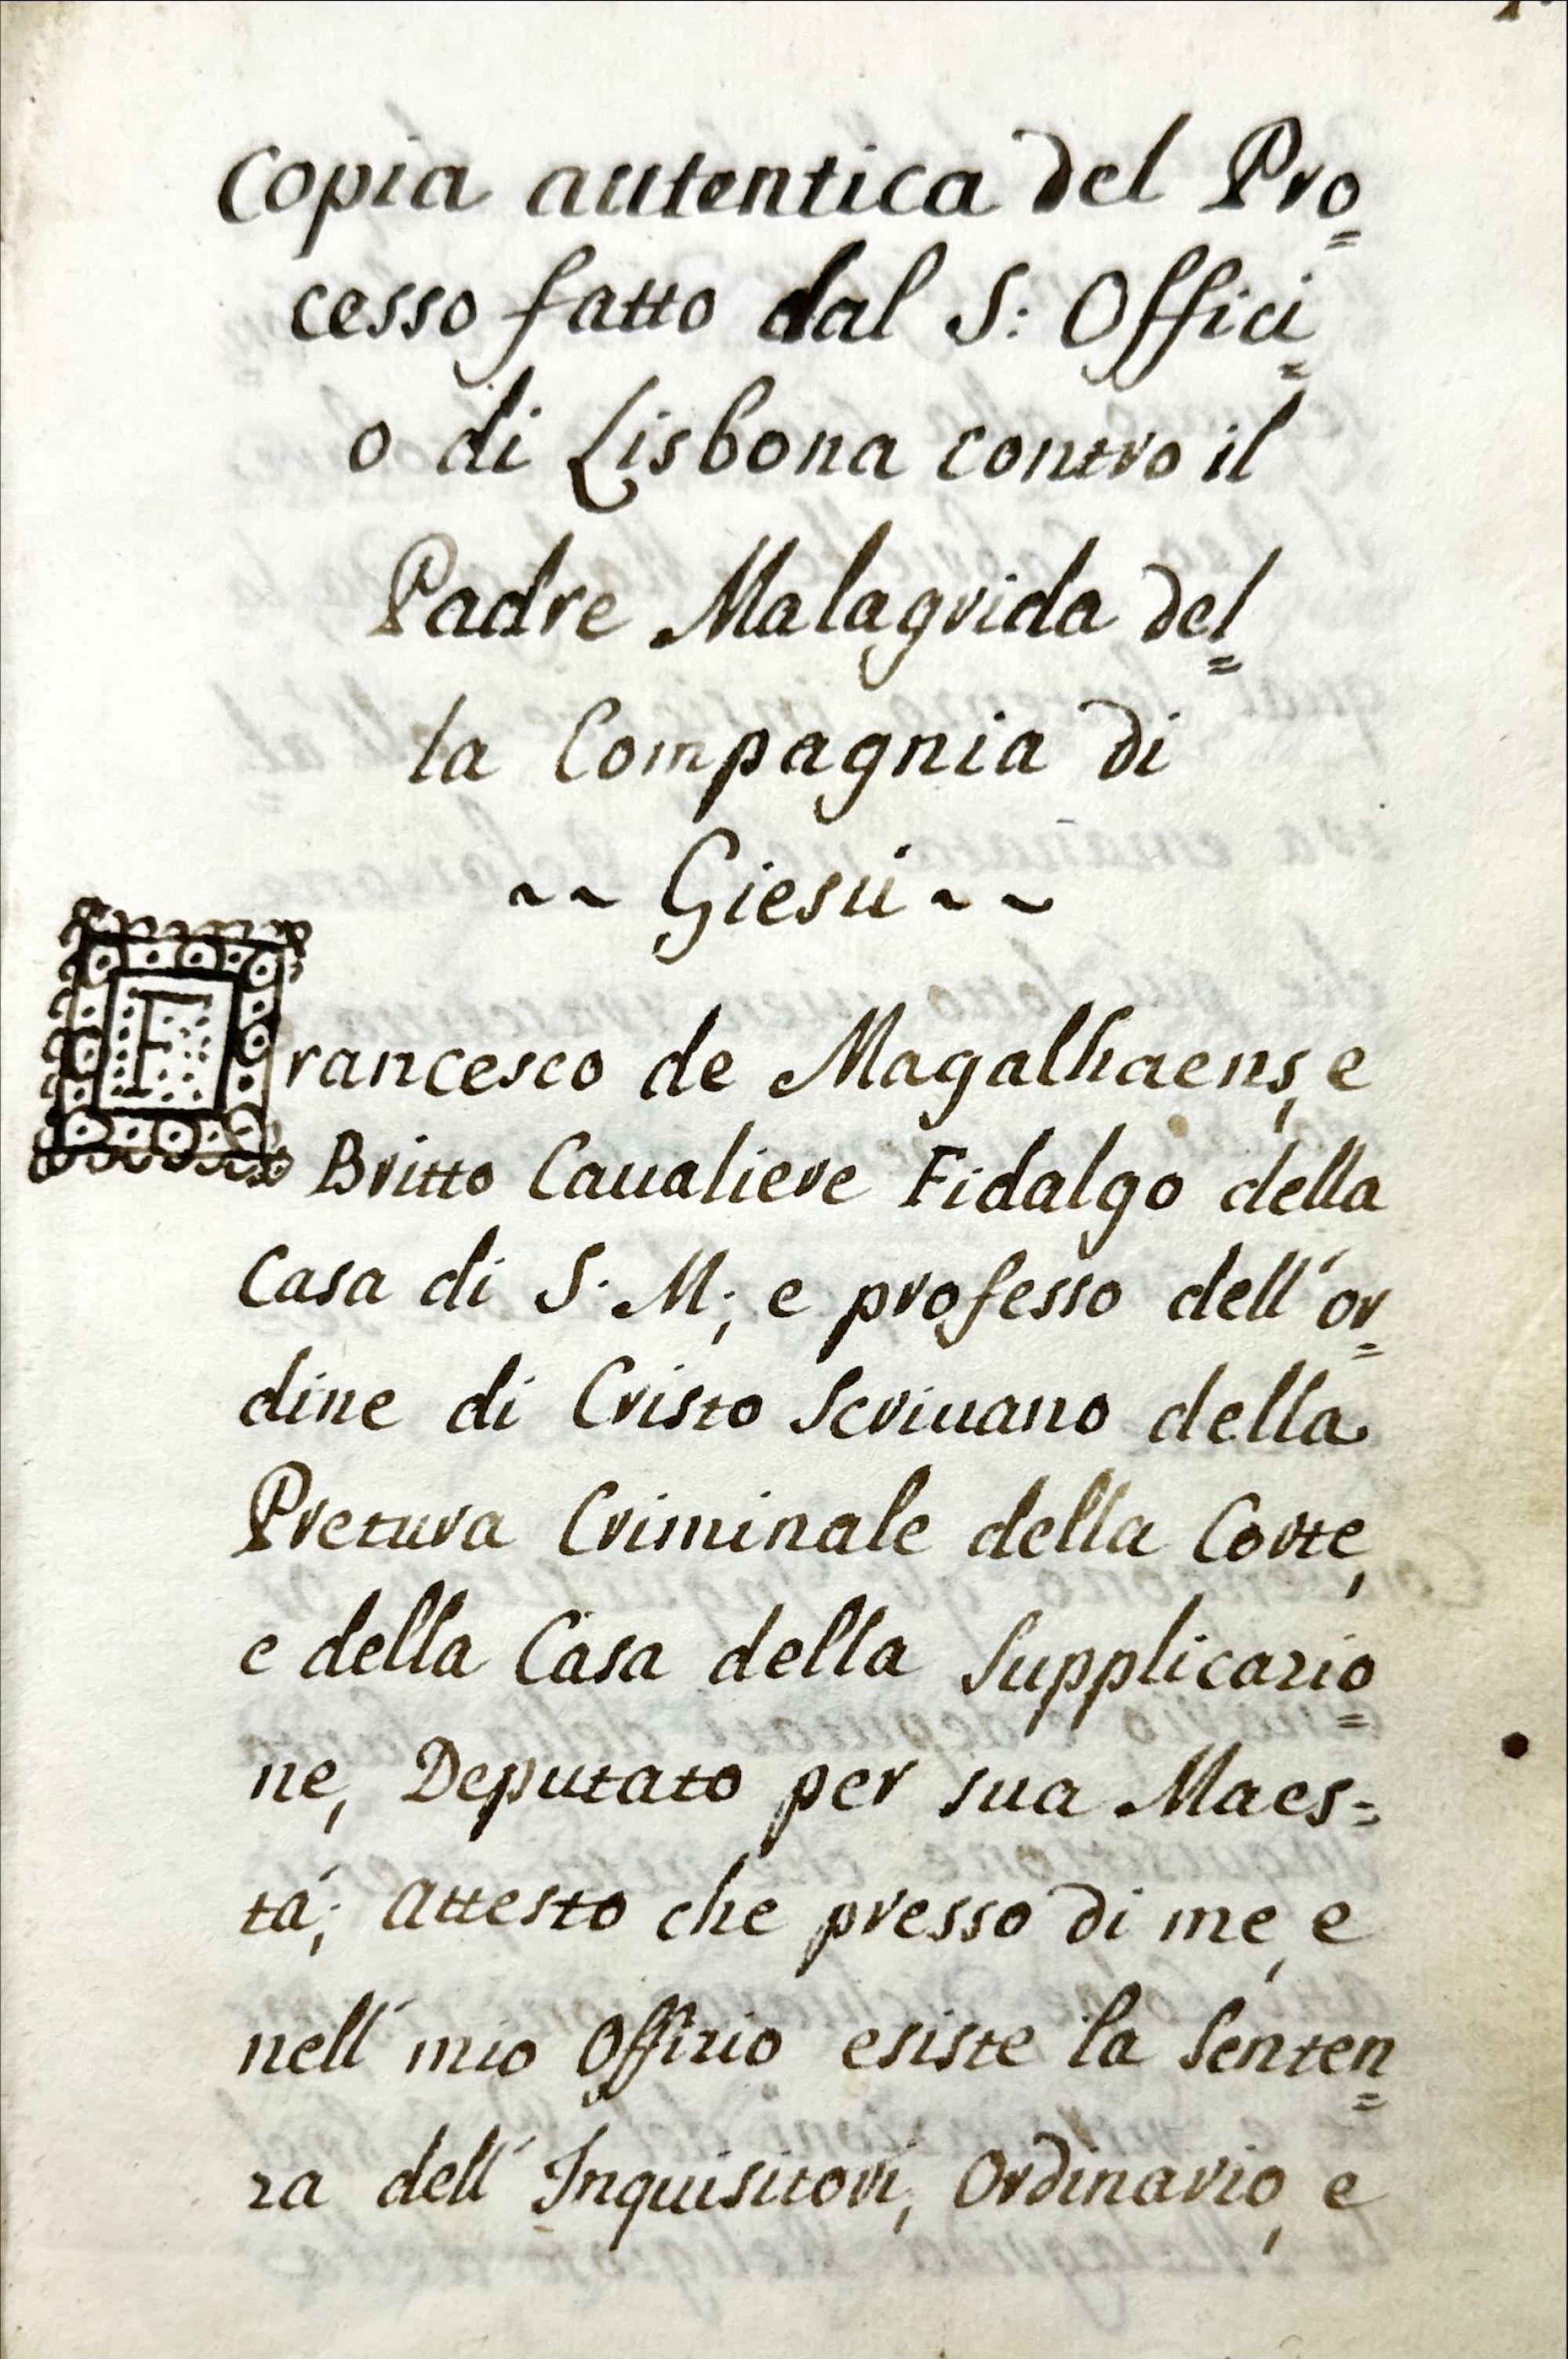 Copia autentica del Pro=
cesso fatto dal S: Offici=
o di Lisbona contro il
Padre Malagrida del=
la Compagnia di
~~ Giesù ~~
Francesco de Magalhaens, e
Britto Caualiere Fidalgo della
Casa di S. M; e professo dell'or=
dine di Cristo Scriuano della
Pretura Criminale della Corte,
e della Casa della Supplicazio=
ne, Deputato per sua Maes=
tá; attesto che presso di me, e
nell' mio Offizio esiste la Senten=
za dell' Inquisitori, Ordinario, e